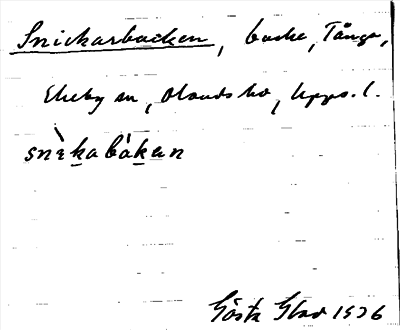 Snickarbacken, backe, Tånga,
Ekeby sn, Olands hd, Upps. l.
snìkabàkan
Gösta Glad 1936